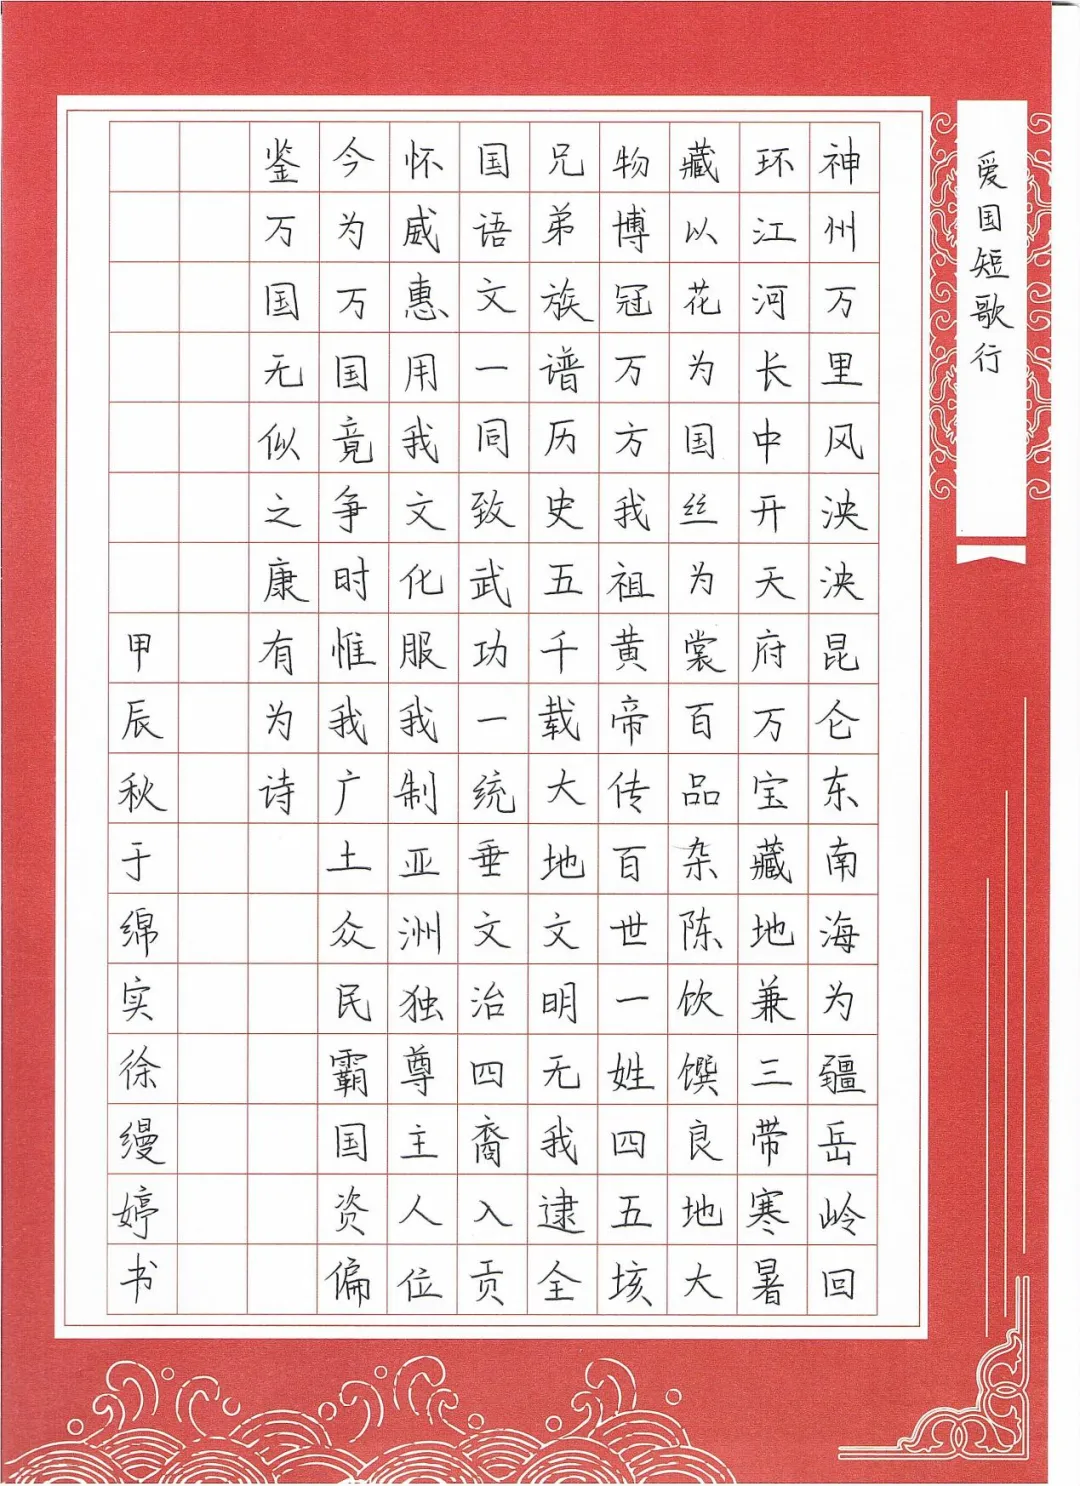 爱国短歌行
神州万里风泱泱昆仑东南海为疆岳岭回
环江河长中开天府万宝藏地兼三带寒暑
藏以花为国丝为裳百品杂陈饮馔良地大
物博冠万方我祖黄帝传百世一姓四五垓
兄弟族谱历史五千载大地文明无我逮全
国语文一同致武功一统垂文治四裔入贡
怀威惠用我文化服我制亚洲独尊主人位
今为万国竟争时惟我广土众民霸国资偏
鉴万国无似之康有为诗
甲辰秋于绵实徐缦婷书